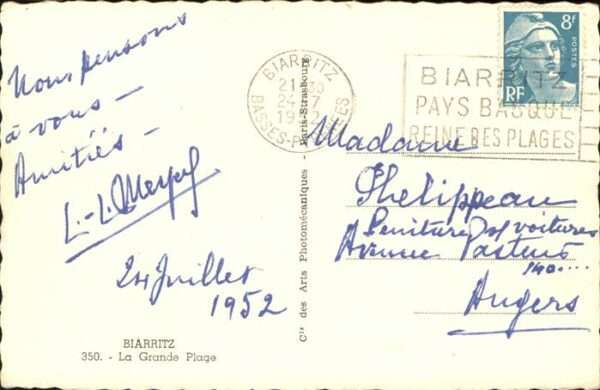 Nous pensons
à vous —
Amitiés —
24 Juillet
1952
BIARRITZ
350. - La Grande Plage
Cie des Arts Photomécaniques - Paris-Strasbourg
BIARRITZ
24 - 7
BASSES-PYRENEES
BIARRITZ
PAYS BASQUE
REINE DES PLAGES
8F
POSTES
RF
Madame
Phelippeau
voitures
Avenue Pasteur
140....
Angers